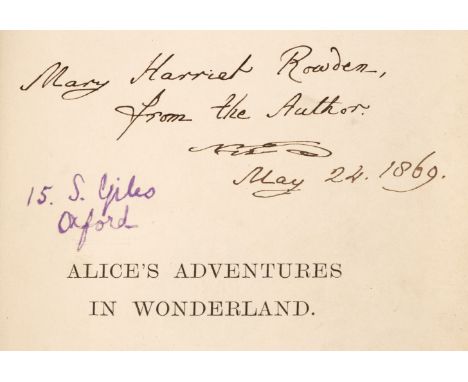 Mary Harriet Rowden,
from the Author.
May 24. 1869.
15. S. Giles
Oxford
ALICE'S ADVENTURES
IN WONDERLAND.